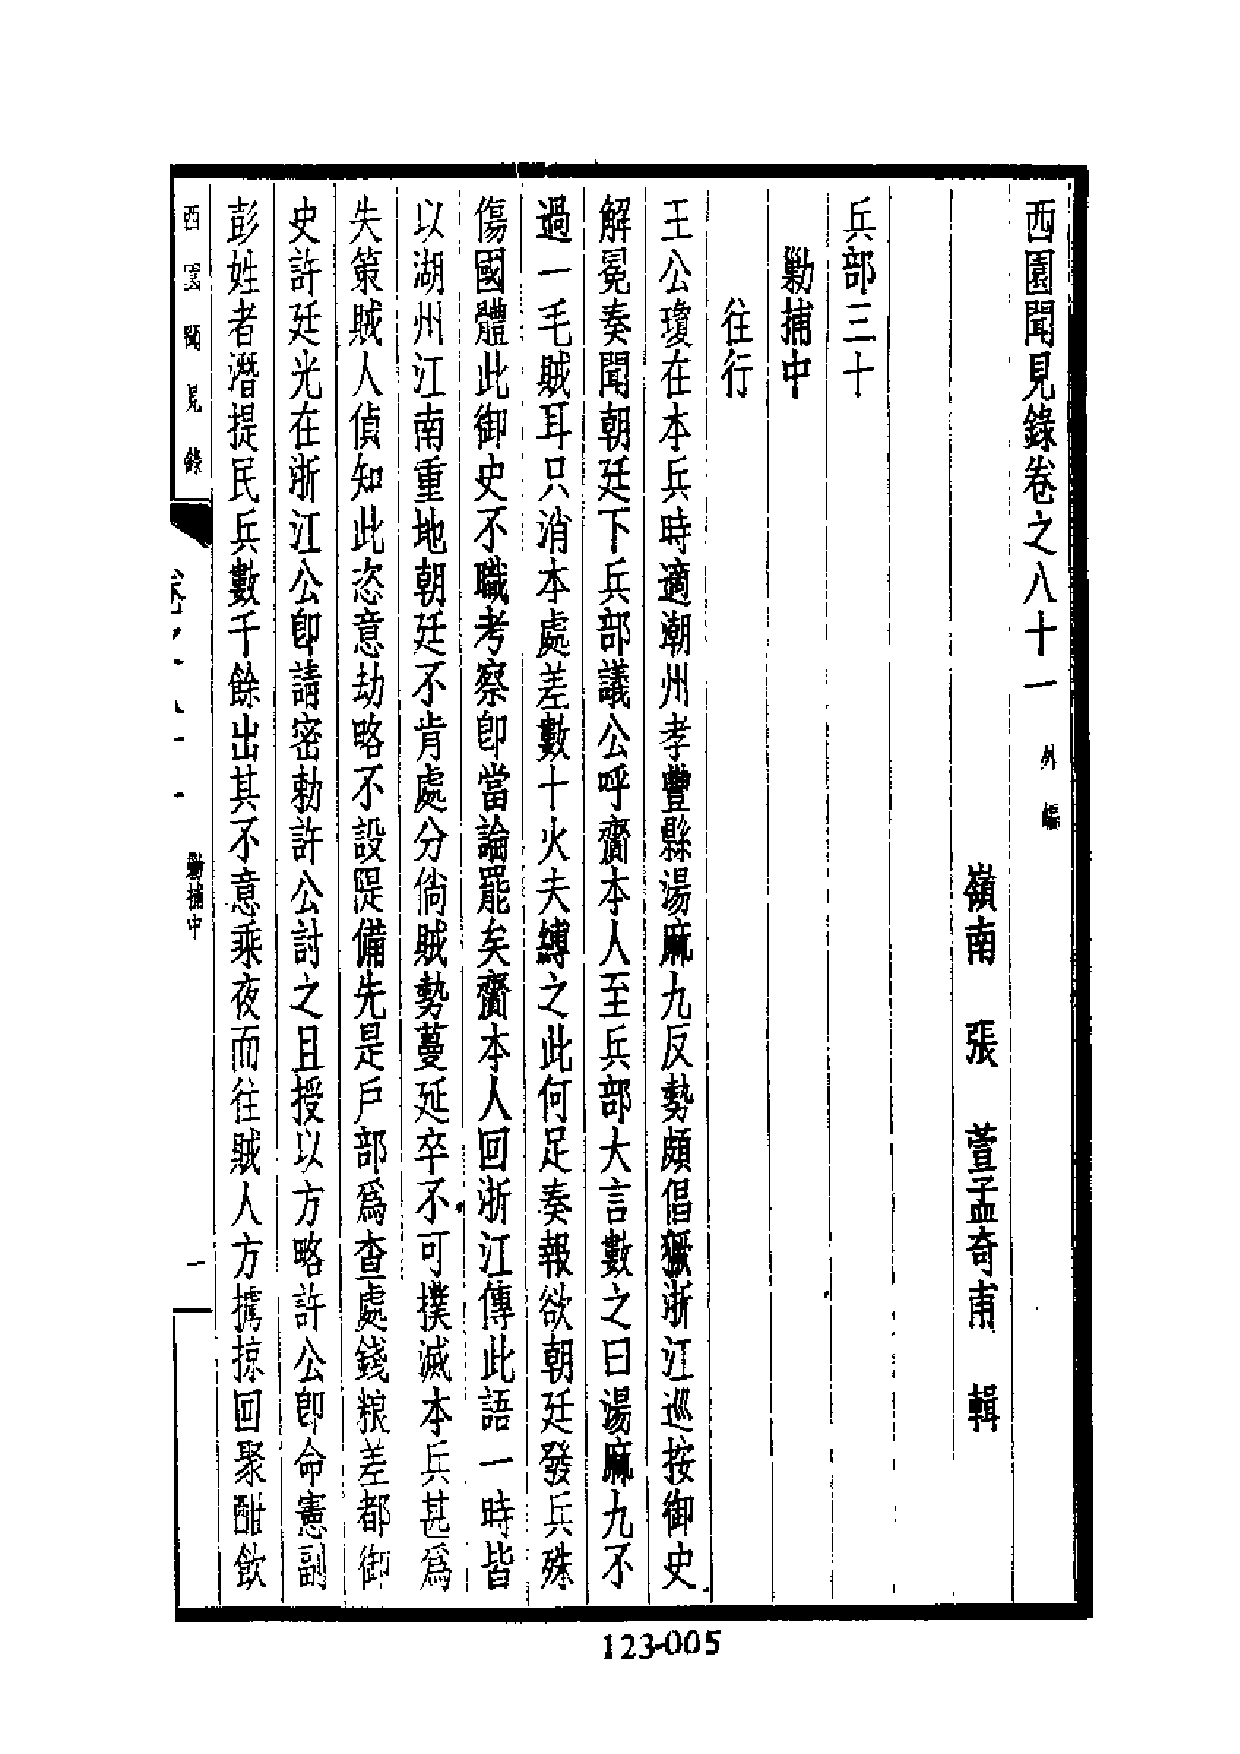 西園聞見錄卷之八十一 外編
嶺南 張 萱孟奇甫 輯
兵部三十
勦捕中
往行
王公瓊在本兵時適潮州孝豐縣湯麻九反勢頗倡獗浙江巡按御史
解冕奏聞朝廷下兵部議公呼齎本人至兵部大言數之曰湯麻九不
過一毛賊耳只消本處差數十火夫縛之此何足奏報欲朝廷發兵殊
傷國體此御史不職考察卽當論罷矣齎本人回浙江傳此語一時皆
以湖州江南重地朝廷不肯處分倘賊勢蔓延卒不可撲滅本兵甚爲
失策賊人偵知此恣意劫略不設隄備先是戶部爲查處錢粮差都御
史許廷光在浙江公卽請密勅許公討之且授以方略許公卽命憲副
彭姓者潛提民兵數千餘出其不意乘夜而往賊人方擄掠回聚酣飲
西園聞見錄
勦捕中
一
123-005